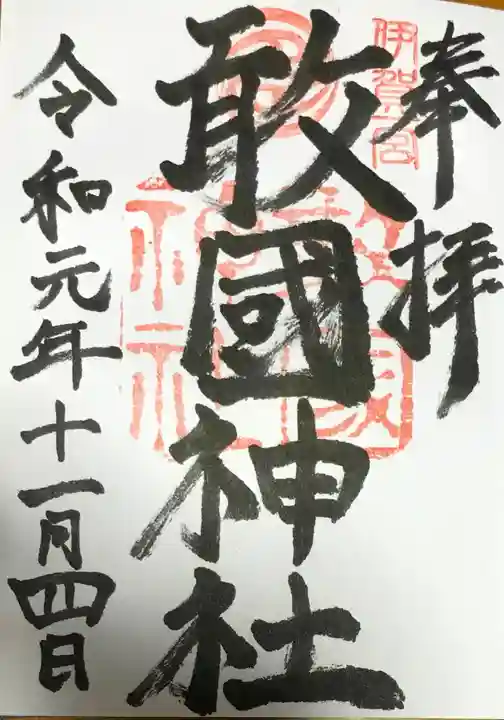 奉拝
伊賀一宮
敢國神社
令和元年十一月四日